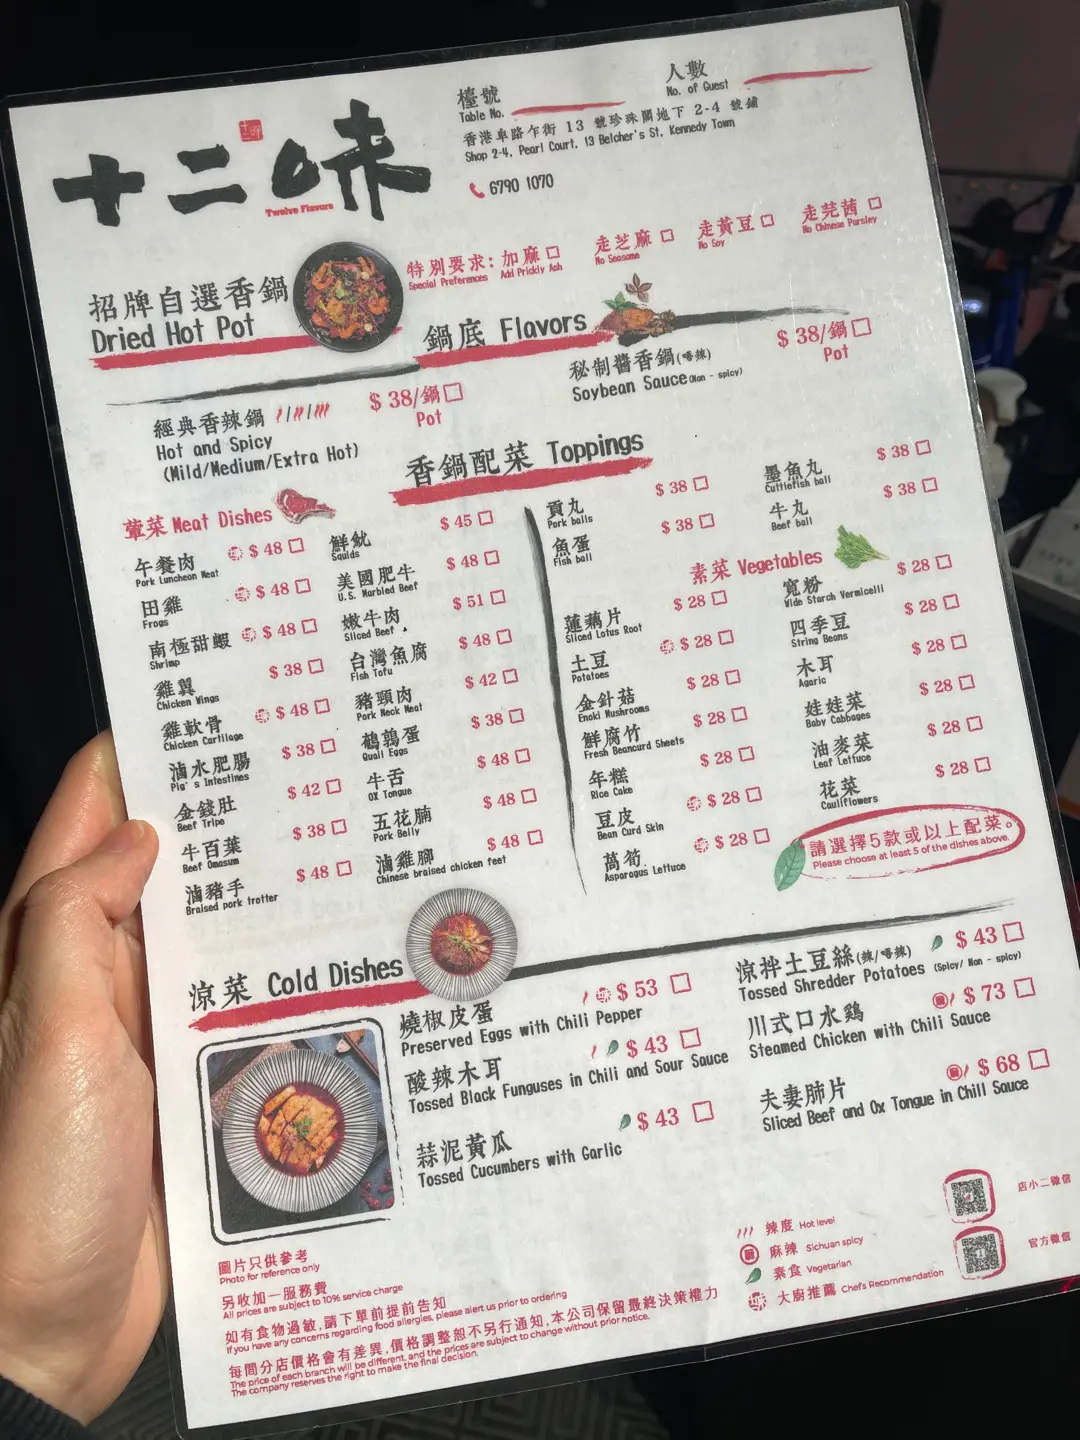 十二味
Twelve Flavors
檯號
Table No.
人數
No. of Guest
香港卑路乍街 13 號珍珠閣地下 2-4 號鋪
Shop 2-4, Pearl Court, 13 Belcher's St, Kennedy Town
6790 1070
特別要求:
Special Preferences
加麻
Add Prickly Ash
走芝麻
No Seasame
走黃豆
No Soy
走芫茜
No Chinese Parsley
招牌自選香鍋
Dried Hot Pot
鍋底 Flavors
經典香辣鍋
Hot and Spicy
(Mild/Medium/Extra Hot)
$ 38/鍋
Pot
秘制醬香鍋(唔辣)
Soybean Sauce(Non - spicy)
$ 38/鍋
Pot
香鍋配菜 Toppings
葷菜 Meat Dishes
午餐肉 $ 48
Pork Luncheon Meat
田雞 $ 48
Frogs
南極甜蝦 $ 48
Shrimp
雞翼 $ 38
Chicken Wings
雞軟骨 $ 48
Chicken Cartilage
滷水肥腸 $ 38
Pig's Intestines
金錢肚 $ 42
Beef Tripe
牛百葉 $ 38
Beef Omasum
滷豬手 $ 48
Braised pork trotter
鮮魷 $ 45
Squids
美國肥牛 $ 48
U.S. Marbled Beef
嫩牛肉 $ 51
Sliced Beef
台灣魚腐 $ 48
Fish Tofu
豬頸肉 $ 42
Pork Neck Meat
鵪鶉蛋 $ 38
Quail Eggs
牛舌 $ 48
OX Tongue
五花腩 $ 48
Pork Belly
滷雞腳 $ 48
Chinese braised chicken feet
貢丸 $ 38
Pork balls
魚蛋 $ 38
Fish ball
墨魚丸 $ 38
Cuttlefish ball
牛丸 $ 38
Beef ball
素菜 Vegetables
蓮藕片 $ 28
Sliced Lotus Root
土豆 $ 28
Potatoes
金針菇 $ 28
Enoki Mushrooms
鮮腐竹 $ 28
Fresh Beancurd Sheets
年糕 $ 28
Rice Cake
豆皮 $ 28
Bean Curd Skin
萵筍 $ 28
Asparagus Lettuce
寬粉 $ 28
Wide Starch Vermicelli
四季豆 $ 28
String Beans
木耳 $ 28
Agaric
娃娃菜 $ 28
Baby Cabbages
油麥菜 $ 28
Leaf Lettuce
花菜 $ 28
Cauliflowers
請選擇5款或以上配菜。
Please choose at least 5 of the dishes above.
涼菜 Cold Dishes
燒椒皮蛋 $ 53
Preserved Eggs with Chili Pepper
酸辣木耳 $ 43
Tossed Black Funguses in Chili and Sour Sauce
蒜泥黃瓜 $ 43
Tossed Cucumbers with Garlic
涼拌土豆絲(辣/唔辣) $ 43
Tossed Shredder Potatoes (Spicy/ Non - spicy)
川式口水鷄 $ 73
Steamed Chicken with Chili Sauce
夫妻肺片 $ 68
Sliced Beef and Ox Tongue in Chill Sauce
圖片只供參考
Photo for reference only
另收加一服務費
All prices are subject to 10% service charge
如有食物過敏,請下單前提前告知
If you have any concerns regarding food allergies, please alert us prior to ordering
每間分店價格會有差異,價格調整恕不另行通知,本公司保留最終決策權力
The price of each branch will be different, and the prices are subject to change without prior notice.
The company reserves the right to make the final decision.
辣度 Hot level
麻辣 Sichuan spicy
素食 Vegetarian
大廚推薦 Chef's Recommendation
店小二微信
官方微信